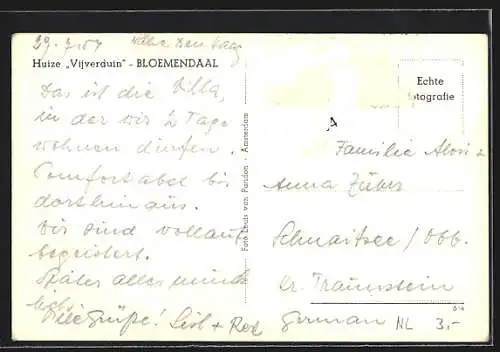 29.7.54
Huize „Vijverduin" - BLOEMENDAAL
Das ist die Villa,
in der wir 2 Tage
wohnen dürfen.
Comfortabel bis
dorthinaus.
Wir sind vollauf
begeistert.
Später alles münd
lich.
Viele Grüße! Lisl +
Foto Louis van Paridon - Amsterdam
Echte
fotografie
Familie Alois u
Anna Zuber
Schnaitsee / Obb.
Kr. Traunstein
German
NL 3.-